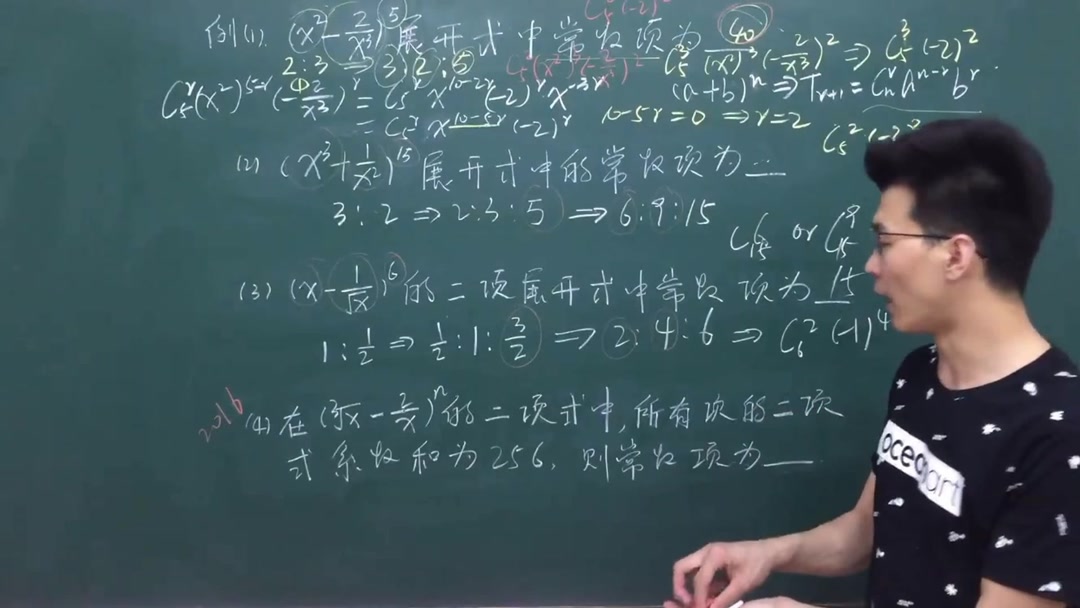 C₅²(-2)²
例(1). (x² - 2/x³)⁵ 展开式中常数项为 40
2:3 ⇒ 3:2:5 C₅³(x²)³(-2/x³)² C₅³(x²)³(-2/x³)² ⇒ C₅³(-2)²
C₅ʳ(x²)⁵⁻ʳ(-2/x³)ʳ = C₅ʳ x¹⁰⁻²ʳ(-2)ʳ x⁻³ʳ (a+b)ⁿ ⇒ Tᵣ₊₁ = Cₙʳ aⁿ⁻ʳ bʳ
= C₅ʳ x¹⁰⁻⁵ʳ (-2)ʳ 10-5r=0 ⇒ r=2 C₅²(-2)²
(2) (x³ + 1/x²)¹⁵ 展开式中的常数项为
3:2 ⇒ 2:3:5 ⇒ 6:9:15 C₁₅⁶ or C₁₅⁹
(3) (x - 1/√x)⁶ 的二项展开式中常数项为 15
1:1/2 ⇒ 1/2:1:3/2 ⇒ 2:4:6 ⇒ C₆²(-1)⁴
2016 (4) 在 (∛x - 2/x)ⁿ 的二项式中,所有项的二项
式系数和为256,则常数项为
oce art